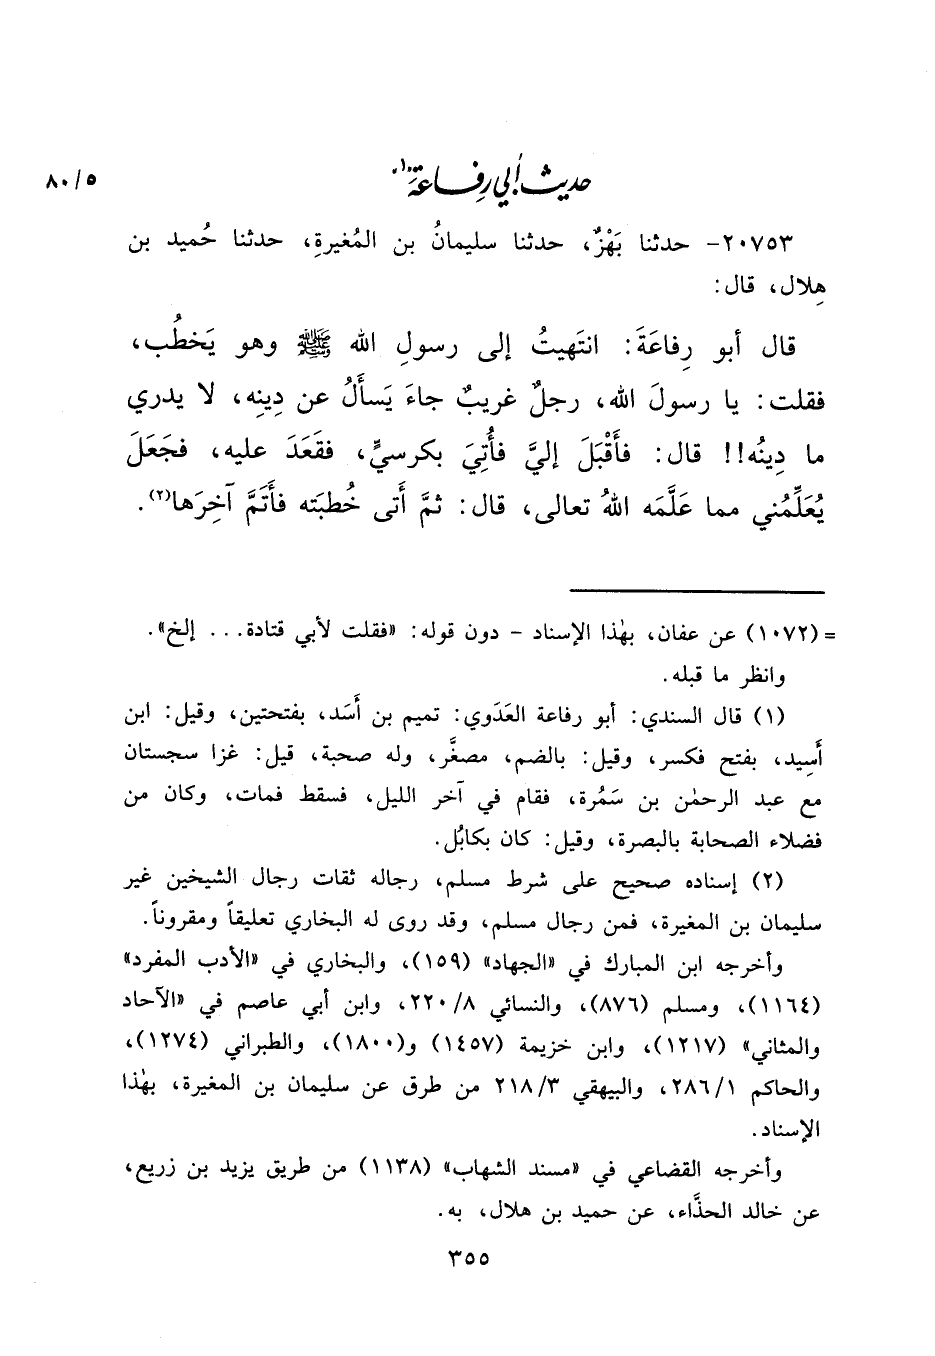 حديث أبي رفاعة(١)
٨٠/٥
٢٠٧٥٣- حدثنا بَهْزٌ، حدثنا سليمانُ بن المُغيرةِ، حدثنا حُميد بن
هِلال، قال:
قال أبو رِفاعَةَ: انتَهيتُ إلى رسولِ الله ﷺ وهو يَخطُب،
فقلت: يا رسولَ الله، رجلٌ غريبٌ جاءَ يَسأَلُ عن دِينِه، لا يدري
ما دِينُه!! قال: فأَقْبَلَ إليَّ فأُتِيَ بكرسيٍّ، فقَعَدَ عليه، فجَعَلَ
يُعَلِّمُني مما عَلَّمَه اللهُ تعالى، قال: ثمَّ أَتى خُطبَته فأَتَمَّ آخِرَها(٢).
= (١٠٧٢) عن عفان، بهٰذا الإسناد - دون قوله: «فقلت لأبي قتادة... إلخ».
وانظر ما قبله.
(١) قال السندي: أبو رفاعة العَدَوي: تميم بن أَسَد، بفتحتين، وقيل: ابن
أَسِيد، بفتح فكسر، وقيل: بالضم، مصغَّر، وله صحبة، قيل: غزا سجستان
مع عبد الرحمٰن بن سَمُرة، فقام في آخر الليل، فسقط فمات، وكان من
فضلاء الصحابة بالبصرة، وقيل: كان بكابُل.
(٢) إسناده صحيح على شرط مسلم، رجاله ثقات رجال الشيخين غير
سليمان بن المغيرة، فمن رجال مسلم، وقد روى له البخاري تعليقاً ومقروناً.
وأخرجه ابن المبارك في «الجهاد» (١٥٩)، والبخاري في «الأدب المفرد»
(١١٦٤)، ومسلم (٨٧٦)، والنسائي ٢٢٠/٨، وابن أبي عاصم في «الآحاد
والمثاني» (١٢١٧)، وابن خزيمة (١٤٥٧) و(١٨٠٠)، والطبراني (١٢٧٤)،
والحاكم ٢٨٦/١، والبيهقي ٢١٨/٣ من طرق عن سليمان بن المغيرة، بهٰذا
الإسناد.
وأخرجه القضاعي في «مسند الشهاب» (١١٣٨) من طريق يزيد بن زريع،
عن خالد الحذَّاء، عن حميد بن هلال، به.
٣٥٥